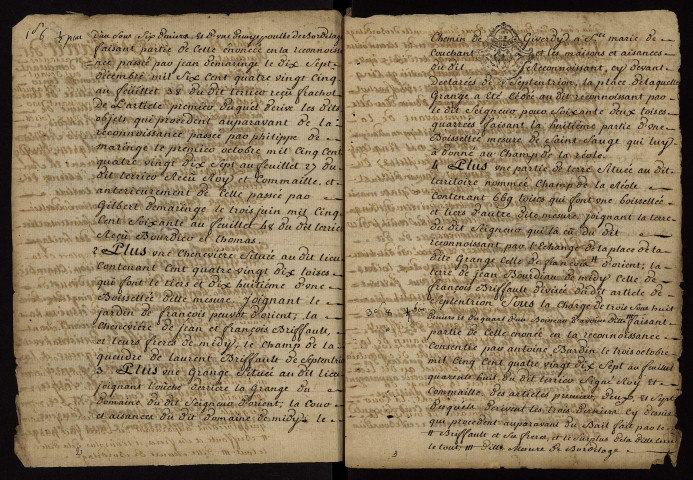 d'un sous six deniers et d'une demye poulle de Bordelage
faisant partie de celle enoncée en la reconnoiss
ance passée par jean demaringe le dix sept
decembre mil six cent quatre vingt cinq
au feuillet 38 du dit terrier reçu frachot
de L'article premier duquel derive les dits
objets qui procedent auparavant de la
reconnoissance passée par philippe de
maringe le premier octobre mil cinq cent
quatre vingt dix sept au feuillet 27 du
dit terrier Reçu Roy et Commaille, et
anterieurement de Celle passée par
Gilbert demaringe le trois juin mil cinq
Cent soixante au feuillet 48 du dit terrier
Reçu Bourdier et thomas
2. Plus une cheneviere située au dit lieu
Contenant Cent quatre vingt dix toises
qui font le tiers et dix huitieme d'une
Boissellée dette mesure joignant le
jardin de françois peuvot d'orient, la
cheneviere de jean et françois Briffault
et leurs freres de midy, le champ de la
de laurent Briffault de septentrion
3. Plus une Grange située au dit lieu
joignant l'ouche derriere la Grange du
domaine du dit seigneur d'orient, la Cour
et aisances du dit domaine de midy, le
2
Chemin de Giverdy à Ste marie de
Couchant et les maisons et aisances
du dit Reconnoissant, cy devant
declarées de septentrion, la place de laquelle
Grange a été cédée au dit reconnoissant par
le dit seigneur pour soixante deux toises
quarrées faisant la huitieme partie d'une
Boissellée mesure de saint sauge qui luy
a donné au champ de la réole
4. Plus une partie de terre située au dit
territoire nommée champ de la Réole
Contenant 669 toises qui font une boissellée
et tiers d'autre dit mesure, joignant la terre
du dit seigneur qui l'a eu du dit
reconnoissant par l'Echange de la place de la
dite Grange Celle de françois d'orient, la
terre de jean Bourdiau de midy Celle de
françois Briffault divisée du dit article de
septentrion sous la charge de trois sous huit
deniers et du quart d'un Boisseau d'avoine faisant
partie de celle enoncé en la reconnoissance
Consentie par antoine Bardin le trois octobre
mil cinq cent quatre vingt dix sept au feuillet
quarente huit du dit terrier signé Roy et
Commaille des articles premier, deux et sept
desquels derivent les trois derniers cy dessus
qui procedent auparavant du Bail fait par le
Briffault et sa frere, et le surplus de la dite terre
le tout dite mesure de Bordelage
3